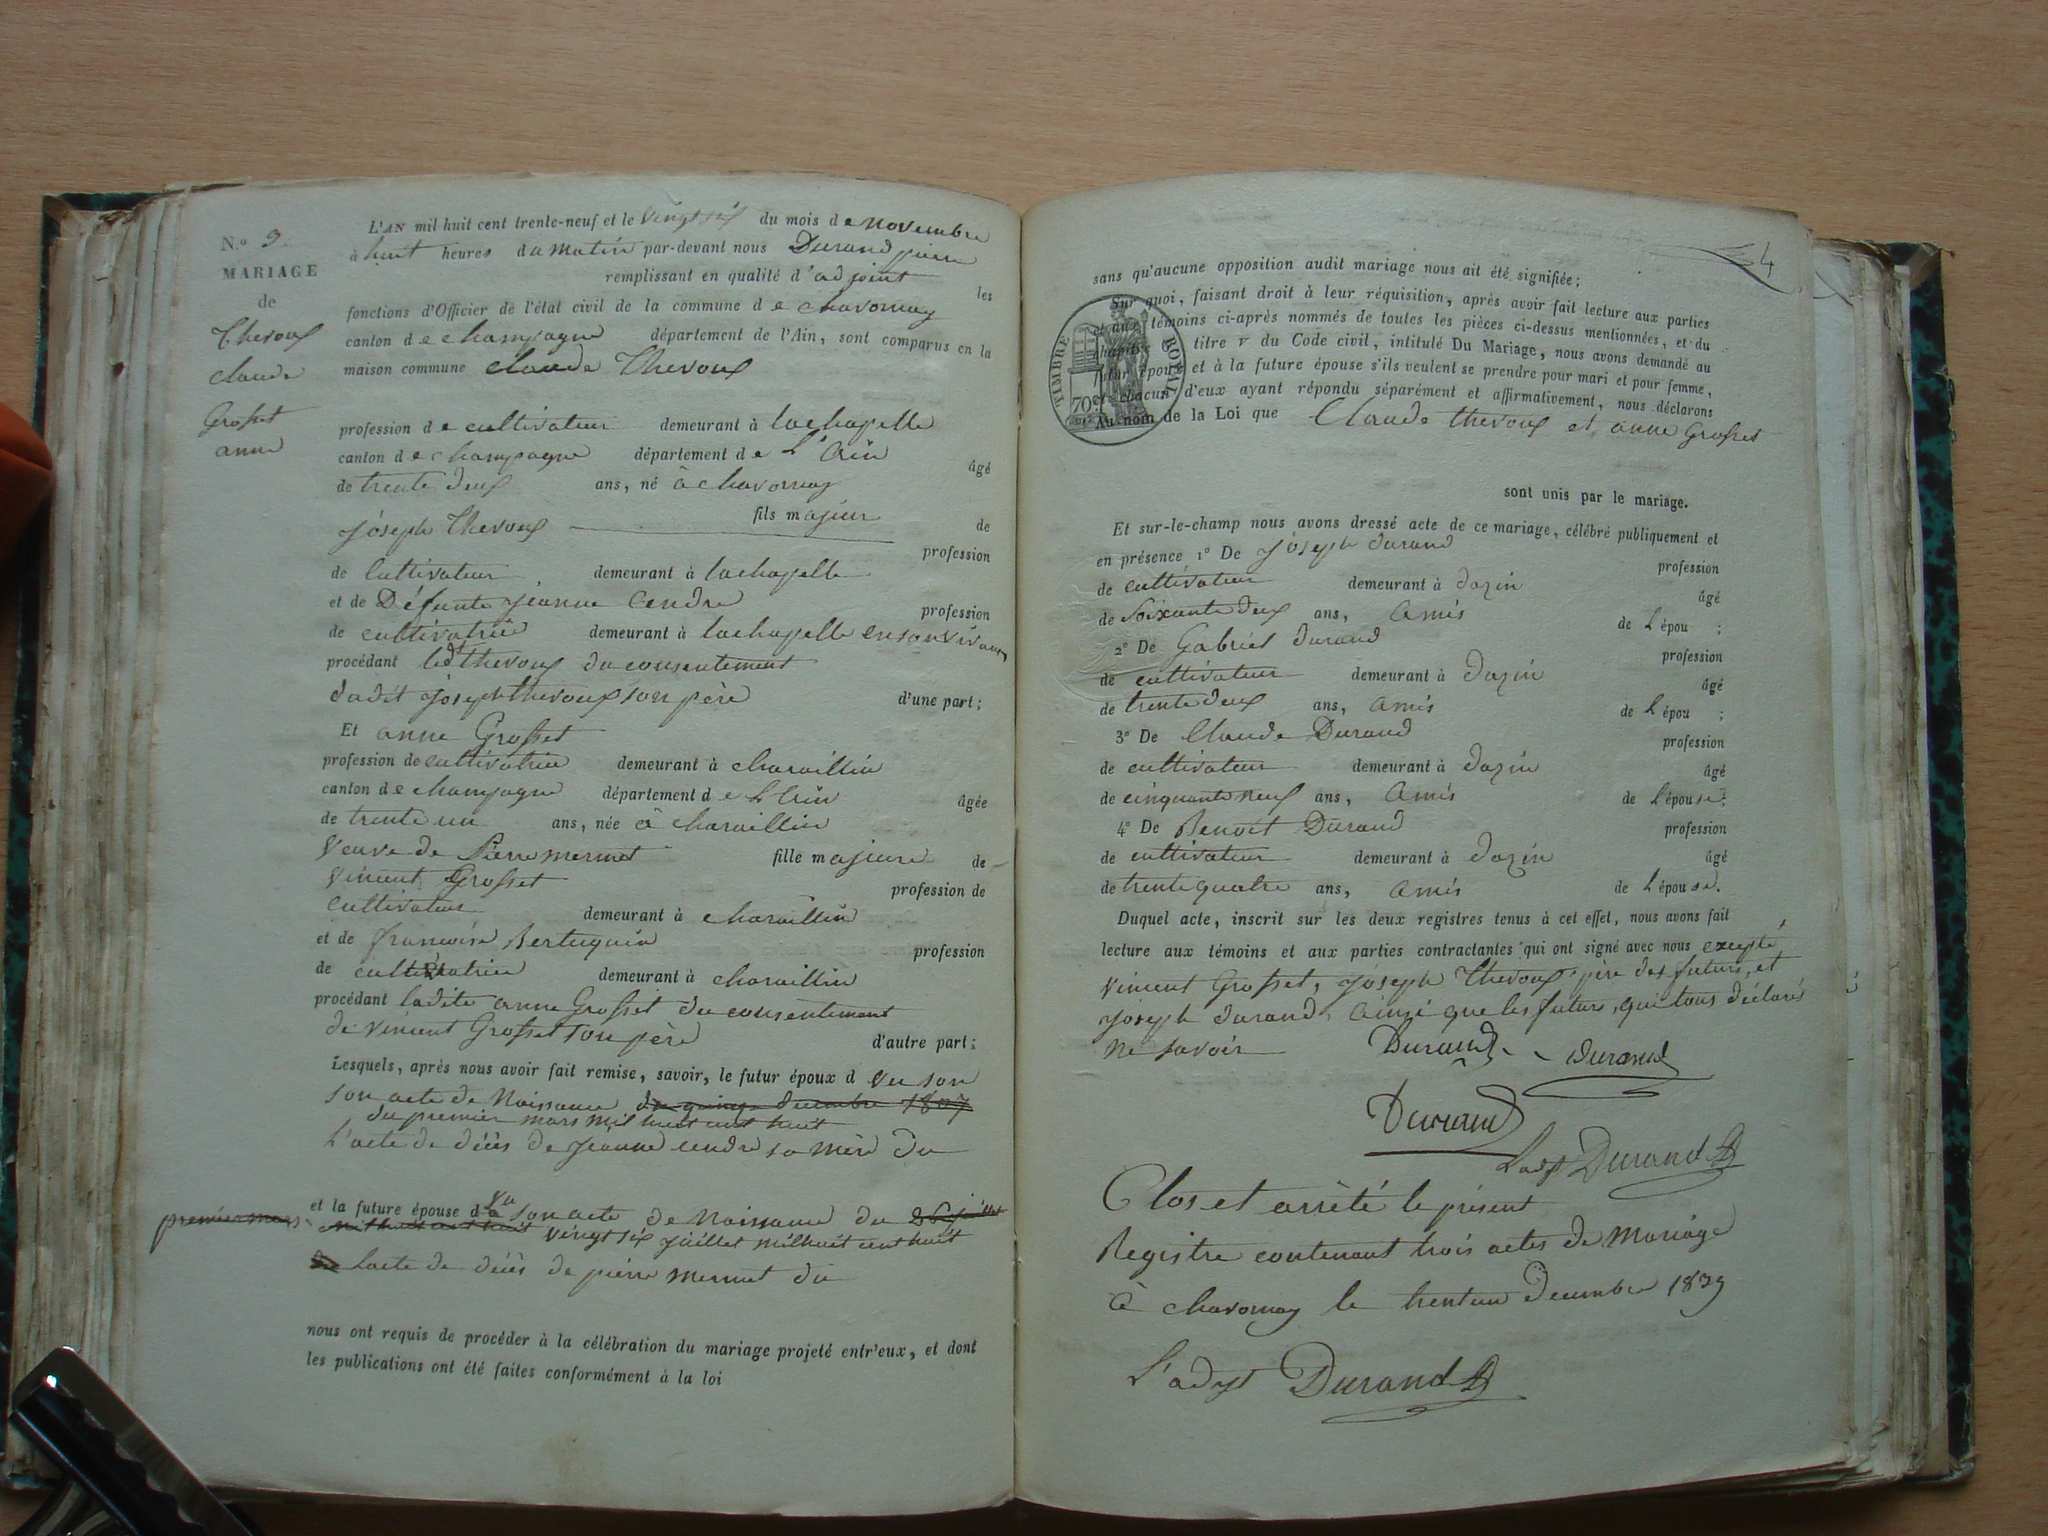 N.º 3
MARIAGE
de
Theroux
claude
Grosset
anne
L'AN mil huit cent trente-neuf et le vingt six du mois de novembre
à huit heures du matin par-devant nous Durand pierre
remplissant en qualité d'adjoint les
fonctions d'Officier de l'état civil de la commune de chavornay
canton de champagne département de l'Ain, sont comparus en la
maison commune claude Theroux
profession de cultivateur demeurant à lachapelle
canton de champagne département de L'Ain âgé
de trente deux ans, né à chavornay
fils majeur de
joseph Theroux profession
de Cultivateur demeurant à lachapelle
et de Défunte jeanne Cendre profession
de cultivatrice demeurant à lachapelle en son vivant
procédant ledt theroux du consentement
dudit joseph theroux son père d'une part;
Et anne Grosset
profession de cultivatrice demeurant à charaillin
canton de champagne département de L'Ain âgée
de trente un ans, née à charaillin
veuve de Pierre mermet fille majeure de
vincent Grosset profession de
cultivateur demeurant à charaillin
et de francoise Bertuquin profession
de cultivatrice demeurant à charaillin
procédant ladite anne Grosset du consentement
de vincent Grosset son père d'autre part;
Lesquels, après nous avoir fait remise, savoir, le futur époux d vu son
son acte de Naissance du quinze decembre 1807
du premier mars mil huit cent huit
L'acte de décès de jeanne cendre sa mère du
et la future épouse d vu son acte de Naissance du 26 juillet
premier mars mil huit cent huit vingt six juillet mil huit cent huit
Lacte de décès de pierre mermet du
nous ont requis de procéder à la célébration du mariage projeté entr'eux, et dont
les publications ont été faites conformément à la loi
4
sans qu'aucune opposition audit mariage nous ait été signifiée;
Sur quoi, faisant droit à leur réquisition, après avoir fait lecture aux parties
et aux témoins ci-après nommés de toutes les pièces ci-dessus mentionnées, et du
chapitre titre V du Code civil, intitulé Du Mariage, nous avons demandé au
futur époux et à la future épouse s'ils veulent se prendre pour mari et pour femme,
et chacun d'eux ayant répondu séparément et affirmativement, nous déclarons
Au nom de la Loi que Claude theroux et anne Grosset
TIMBRE ROYAL
70
sont unis par le mariage.
Et sur-le-champ nous avons dressé acte de ce mariage, célébré publiquement et
en présence 1º De joseph durand profession
de cultivateur demeurant à dazin âgé
de soixante deux ans, amis de L'épou ;
2º De Gabriel durand profession
de cultivateur demeurant à dazin âgé
de trente deux ans, amis de L'épou ;
3º De Claude Durand profession
de cultivateur demeurant à dazin âgé
de cinquante neuf ans, amis de L'épouse;
4º De Benoit Durand profession
de cultivateur demeurant à dazin âgé
de trente quatre ans, amis de L'épouse.
Duquel acte, inscrit sur les deux registres tenus à cet effet, nous avons fait
lecture aux témoins et aux parties contractantes qui ont signé avec nous excepté
vincent Grosset, joseph Theroux père des futurs, et
joseph durand, ainsi que les futurs, qui tous déclarés
ne savoir Durand Durand
Durand
Ladjt Durand
Clos et arrêté le présent
Registre contenant trois actes de mariage
à chavornay le trent un decembre 1839
L'adjt Durand